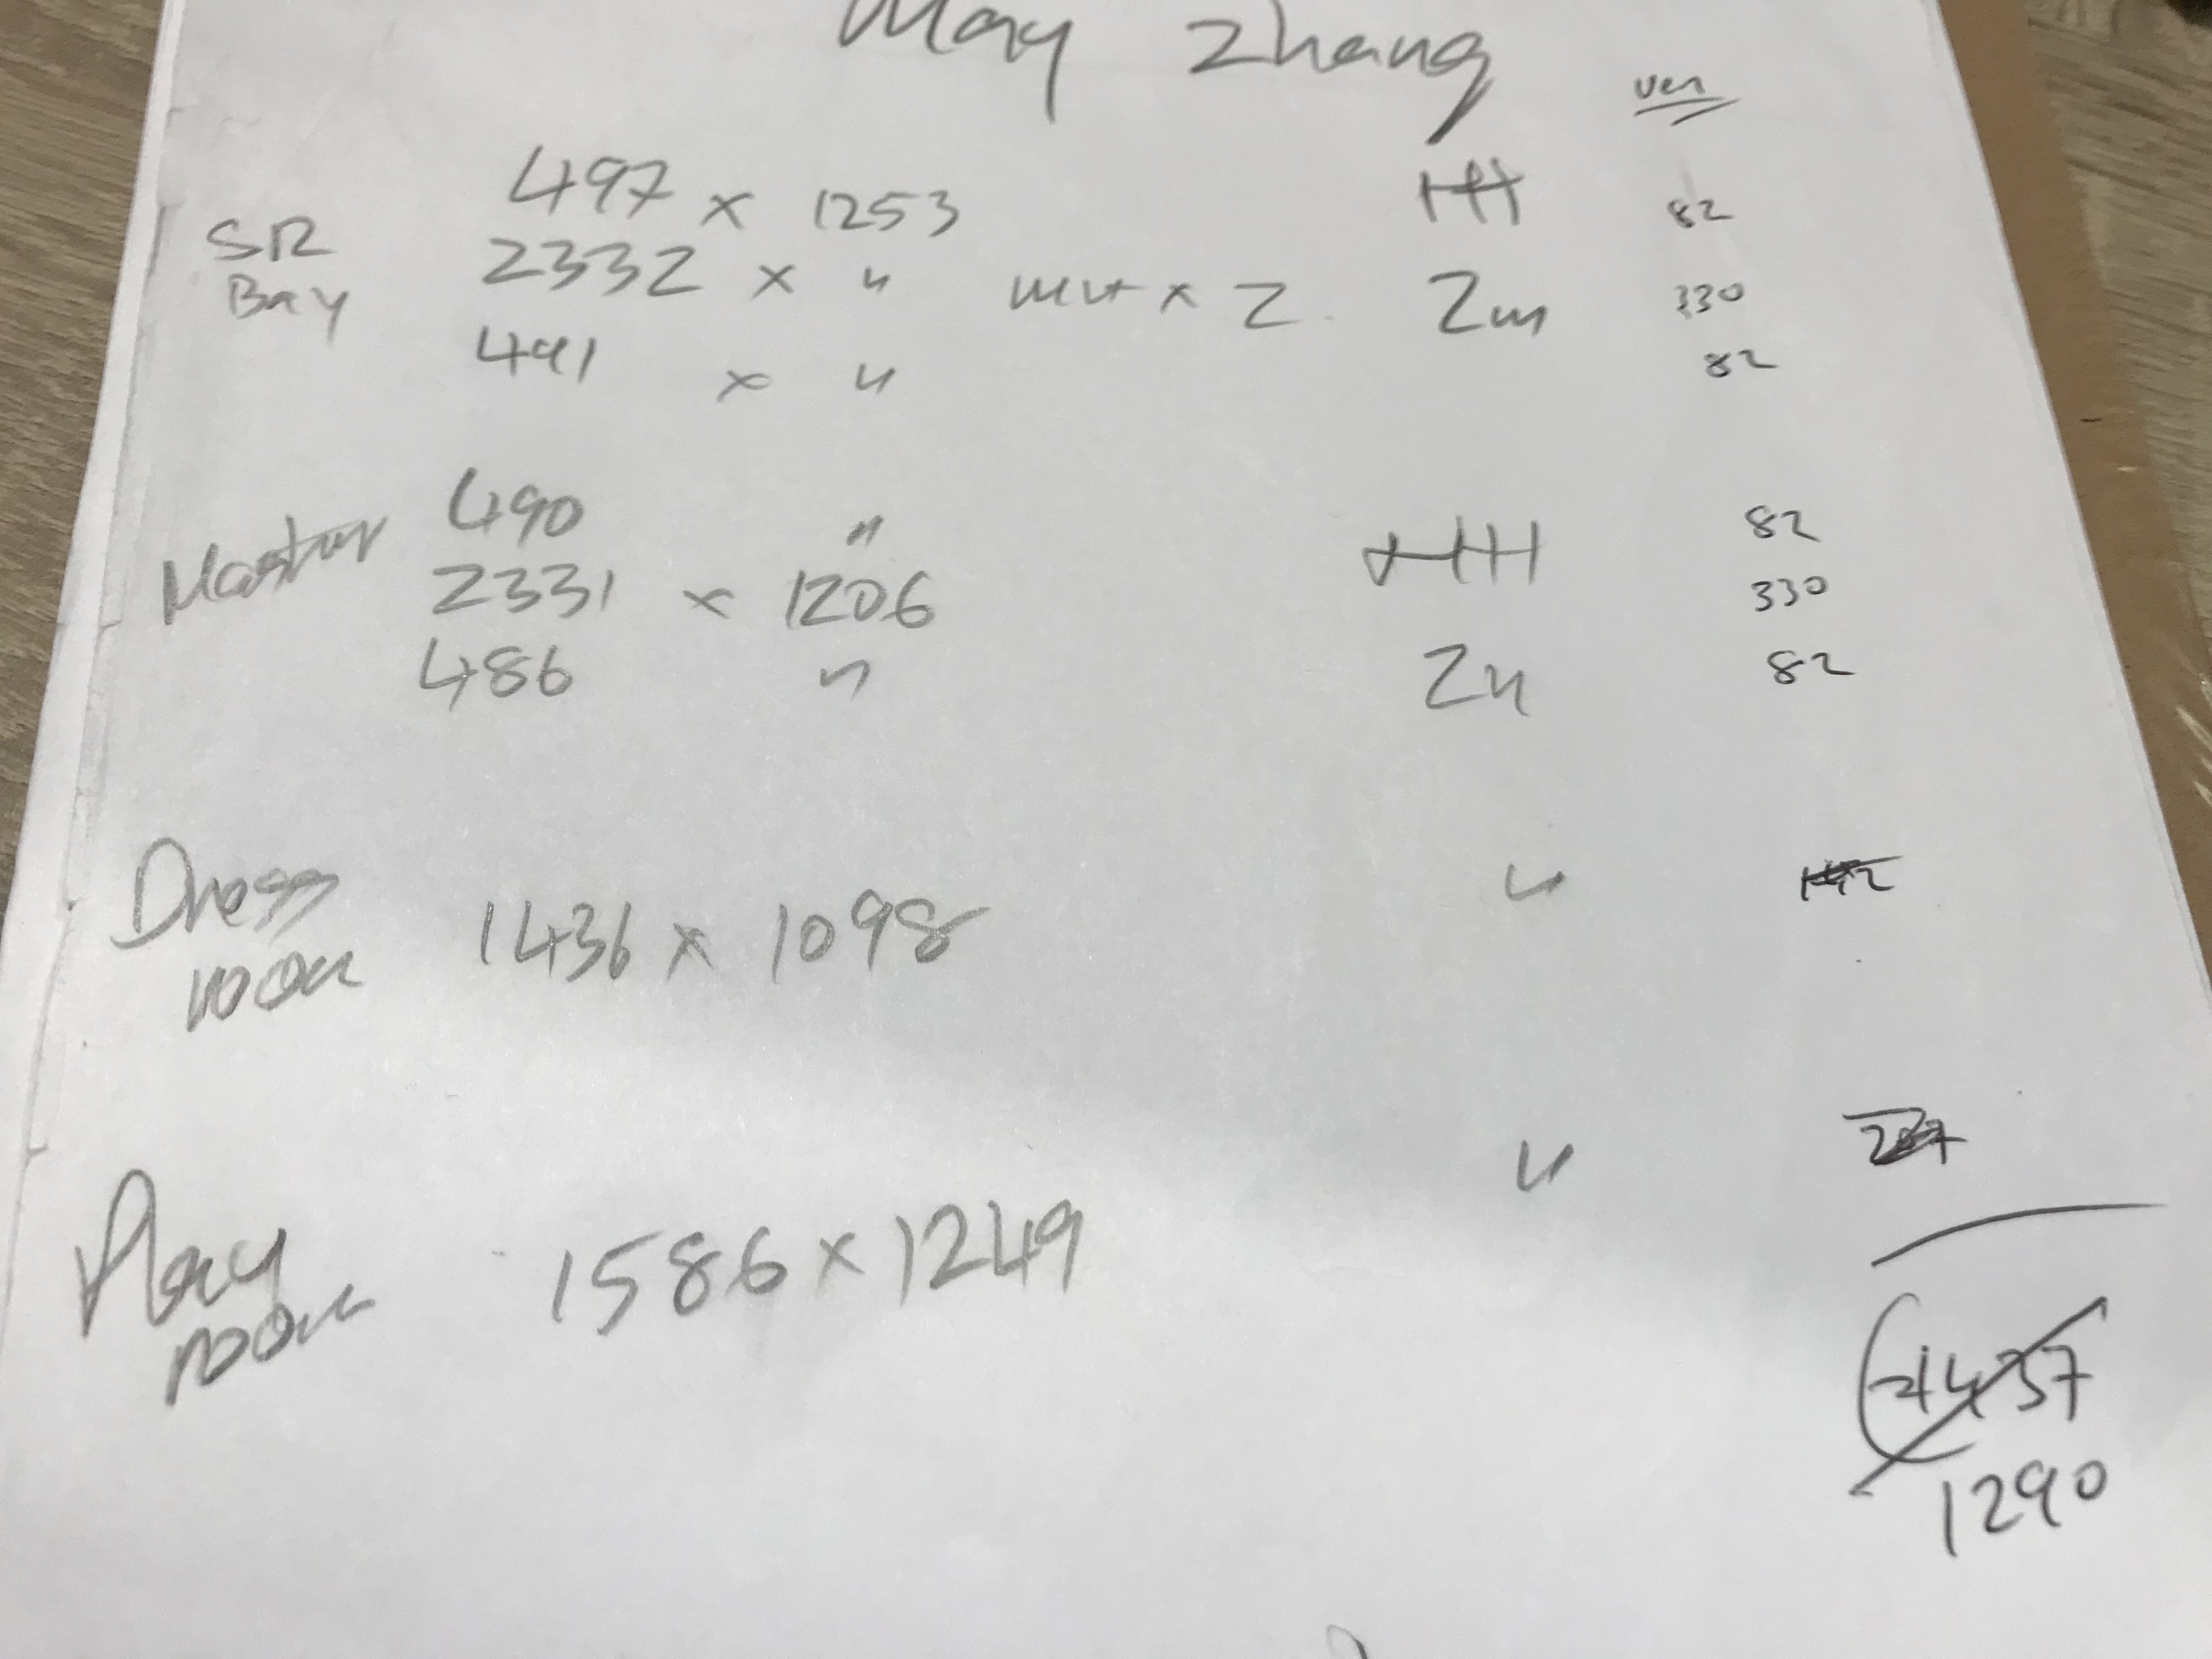 May Zhang
ven
497 x 1253 HH 82
SR Bay 2332 x " mvt x 2 2m 330
491 x " 82
490 " 82
Master 2331 x 1206 HH 330
486 " 2m 82
Dress room 1436 x 1098 "
Play room 1586 x 1249 "
1437
1290